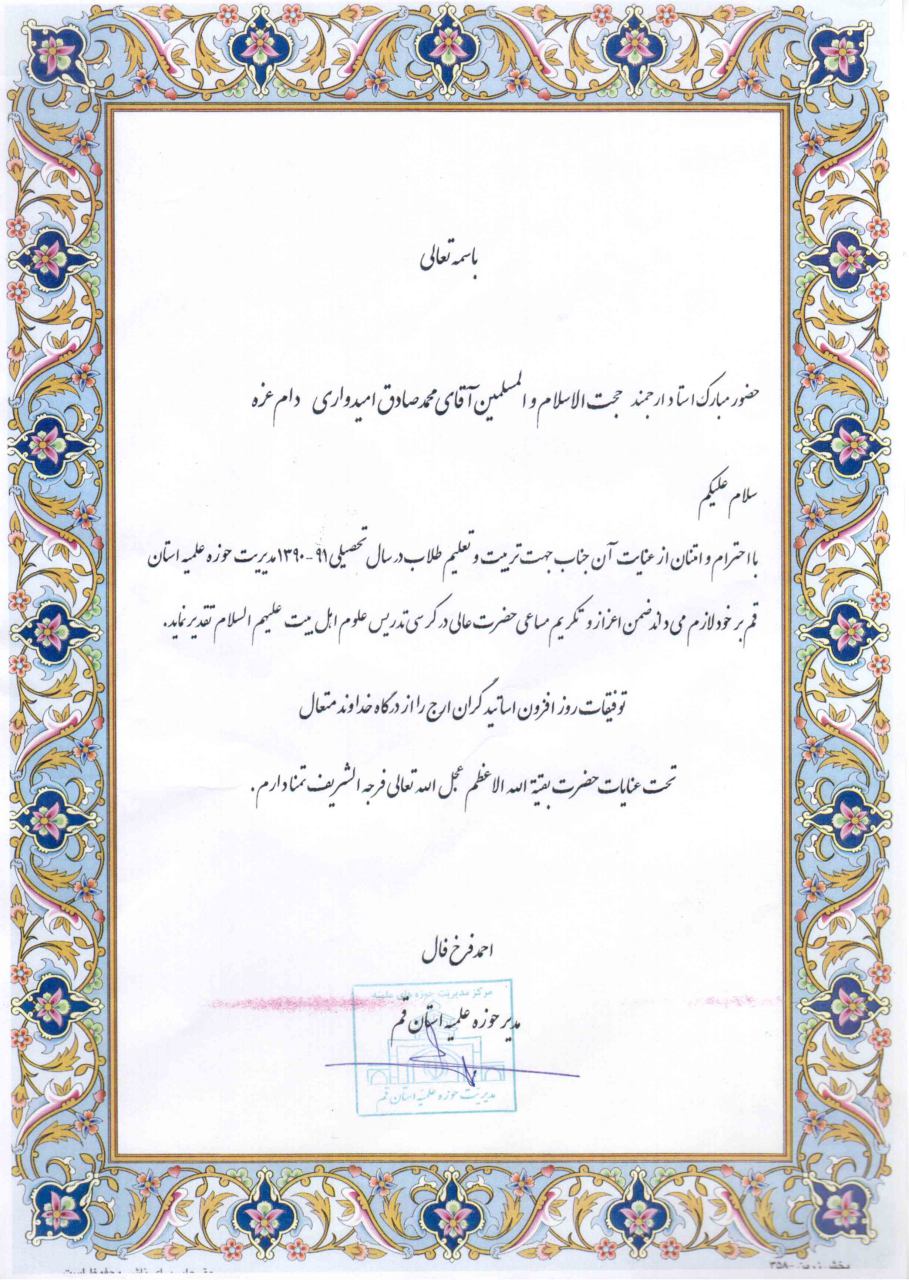 باسمه تعالی
حضور مبارک استاد ارجمند حجت الاسلام و المسلمین آقای محمد صادق امیدواری دام عزه
سلام علیکم
با احترام و امتنان از عنایت آن جناب جهت تربیت و تعلیم طلاب در سال تحصیلی ۹۱-۱۳۹۰ مدیریت حوزه علمیه استان
قم بر خود لازم می داند ضمن اعزاز و تکریم مساعی حضرت عالی در کرسی تدریس علوم اهل بیت علیهم السلام تقدیر نماید.
توفیقات روز افزون اساتید گران ارج را از درگاه خداوند متعال
تحت عنایات حضرت بقیة الله الاعظم عجل الله تعالی فرجه الشریف تمنا دارم.
احمد فرخ فال
مرکز مدیریت حوزه های علمیه
مدیر حوزه علمیه استان قم
مدیریت حوزه علمیه استان قم
۳۵۸-